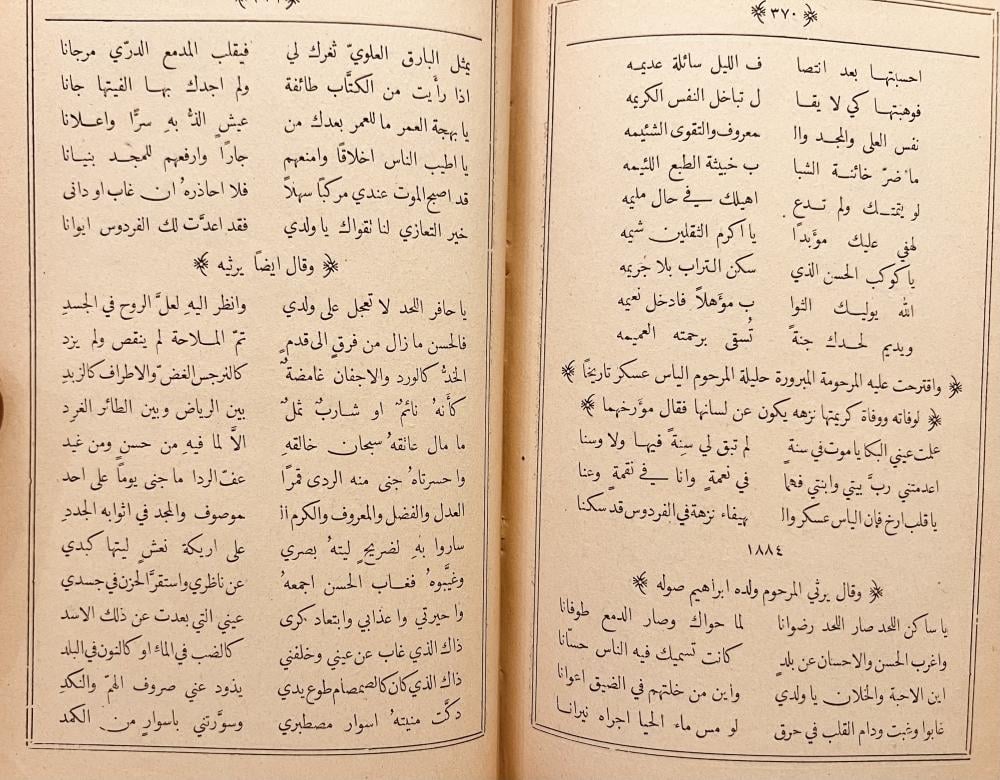 ٣٧٠
احسبتها بعد انتصا ف الليل سائلة عديمه
فوهبتها كي لا يقا ل تباخل النفس الكريمه
نفس العلى والمجد وال معروف والتقوى الشئيمه
ما ضرّ خائنة الشبا ب خبيثة الطبع اللئيمه
لو يتمتك ولم تدع اهيلك في حال مليمه
لهفي عليك مؤبداً يا اكرم الثقلين شيمه
يا كوكب الحسن الذي سكن التراب بلا جريمه
الله يوليك الثوا ب مؤهلاً فادخل نعيمه
ويديم لحدك جنةً تُسقى برحمته العميمه
واقترحت عليه المرحومة المبرورة حليلة المرحوم الياس عسكر تاريخاً
لوفاته ووفاة كريمتها نزهه يكون عن لسانها فقال مؤرخهما
علمت عيني البكا يا موت في سنةٍ لم تبق لي سِنةً فيها ولا وسنا
اعدمتني ربَّ بيتي وابنتي فهما في نعمةٍ وانا في نقمةٍ وعنا
يا قلب ارخ فإن الياس عسكر وال هيفاء نزهة في الفردوس قد سكنا
١٨٨٤
وقال يرثي المرحوم ولده ابراهيم صوله
يا ساكن اللحد صار اللحد رضوانا لما حواك وصار الدمع طوفانا
واغرب الحسن والاحسان عن بلدٍ كانت تسميك فيه الناس حسّانا
اين الاحبة والخلان يا ولدي واين من خلتهم في الضيق اعوانا
غابوا وغبت ودام القلب في حرق لو مس ماء الحيا اجراه نيرانا
يمثل البارق العلويّ ثغرك لي فيقلب المدمع الدرّي مرجانا
اذا رأَيت من الكتَّاب طائفة ولم اجدك بها الفيتها جانا
يا بهجة العمر ما للعمر بعدك من عيش الذُّ بهِ سرًّا واعلانا
يا اطيب الناس اخلاقًا وامنعهم جارًا وارفعهم للمجد بنيانا
قد اصبح الموت عندي مركبًا سهلاً فلا احاذرهُ ان غاب او دانى
خير التعازي لنا تقواك يا ولدي فقد اعدَّت لك الفردوس ايوانا
وقال ايضاً يرثيه
يا حافر اللحد لا تعجل على ولدي وانظر اليهِ لعلَّ الروح في الجسدِ
فالحسن ما زال من فرقٍ الى قدمٍ تمّ الملاحة لم ينقص ولم يزد
الخدُّ كالورد والاجفان غامضةٌ كالنرجس الغضّ والاطراف كالزبدِ
كأَنهُ نائمٌ او شاربٌ ثملٌ بين الرياض وبين الطائر الغرِد
ما مال عانقهُ سبحان خالقهِ الاَّ لما فيهِ من حسنٍ ومن غيد
وا حسرتاهُ جنى منه الردى قمرًا عفّ الردا ما جنى يومًا على احد
العدل والفضل والمعروف والكرم ال موصوف والمجد في اثوابه الجددِ
ساروا بهِ لضريحٍ ليتهُ بصري على اريكة نعشٍ ليتها كبدي
وغيَّبوهُ فغاب الحسن اجمعهُ عن ناظري واستقرَّ الحزن في جسدي
وا حيرتي وا عذابي وابتعاد كرى عيني التي بعدت عن ذلك الاسد
ذاك الذي غاب عن عيني وخلفني كالضب في الماء او كالنون في البلد
ذاك الذي كان كالصمصام طوع يدي يذود عني صروف الهمّ والنكدِ
دكَّت منيتهُ اسوار مصطبري وسوَّرتني باسوارٍ من الكمد